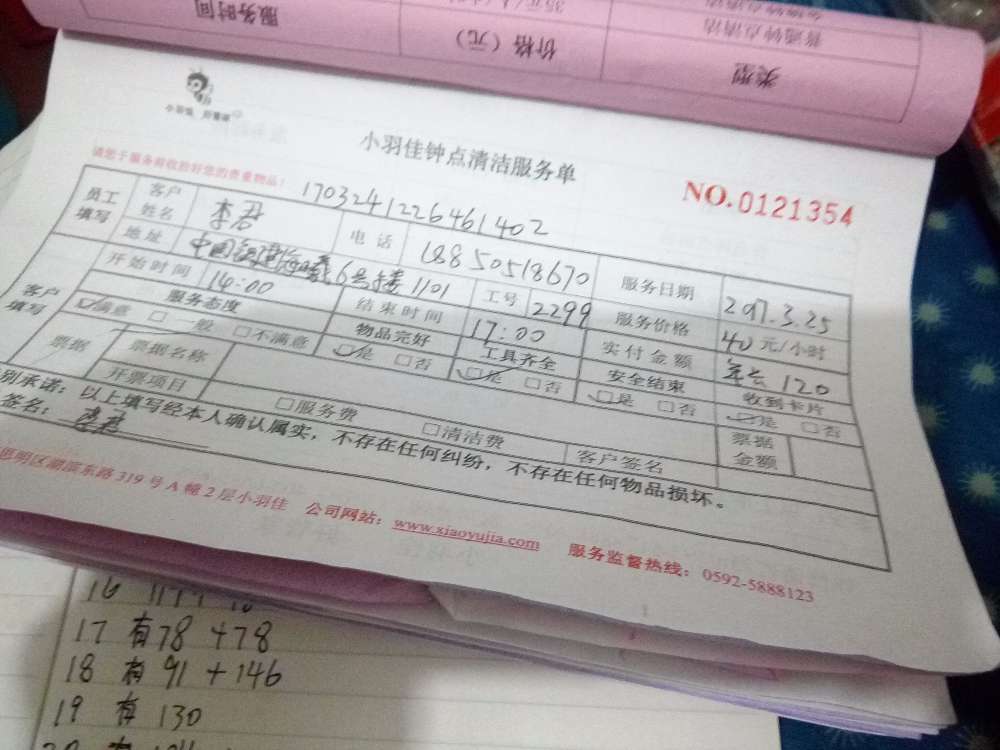 服务时间
35元/人/小时
价格（元）
普通钟点清洁
类型
小羽佳 好管家
小羽佳钟点清洁服务单
请您于服务前收拾好您的贵重物品！
1703241226461402
NO.0121354
员工填写 客户姓名 李君 电话 18850518670 服务日期 2017.3.25
地址 6号楼1101 工号 2299 服务价格 40元/小时
开始时间 14:00 结束时间 17:00 实付金额 120
客户填写 服务态度 物品完好 工具齐全 安全结束 收到卡片
☑满意 □一般 □不满意 ☑是 □否 ☑是 □否 ☑是 □否 ☑是 □否
票据 票据名称 □服务费 □清洁费 票据金额
开票项目 客户签名
别承诺：以上填写经本人确认属实，不存在任何纠纷，不存在任何物品损坏。
签名：
思明区湖滨东路319号A幢2层小羽佳 公司网站：www.xiaoyujia.com 服务监督热线：0592-5888123
16
17 有78+78
18 有91+146
19 有130